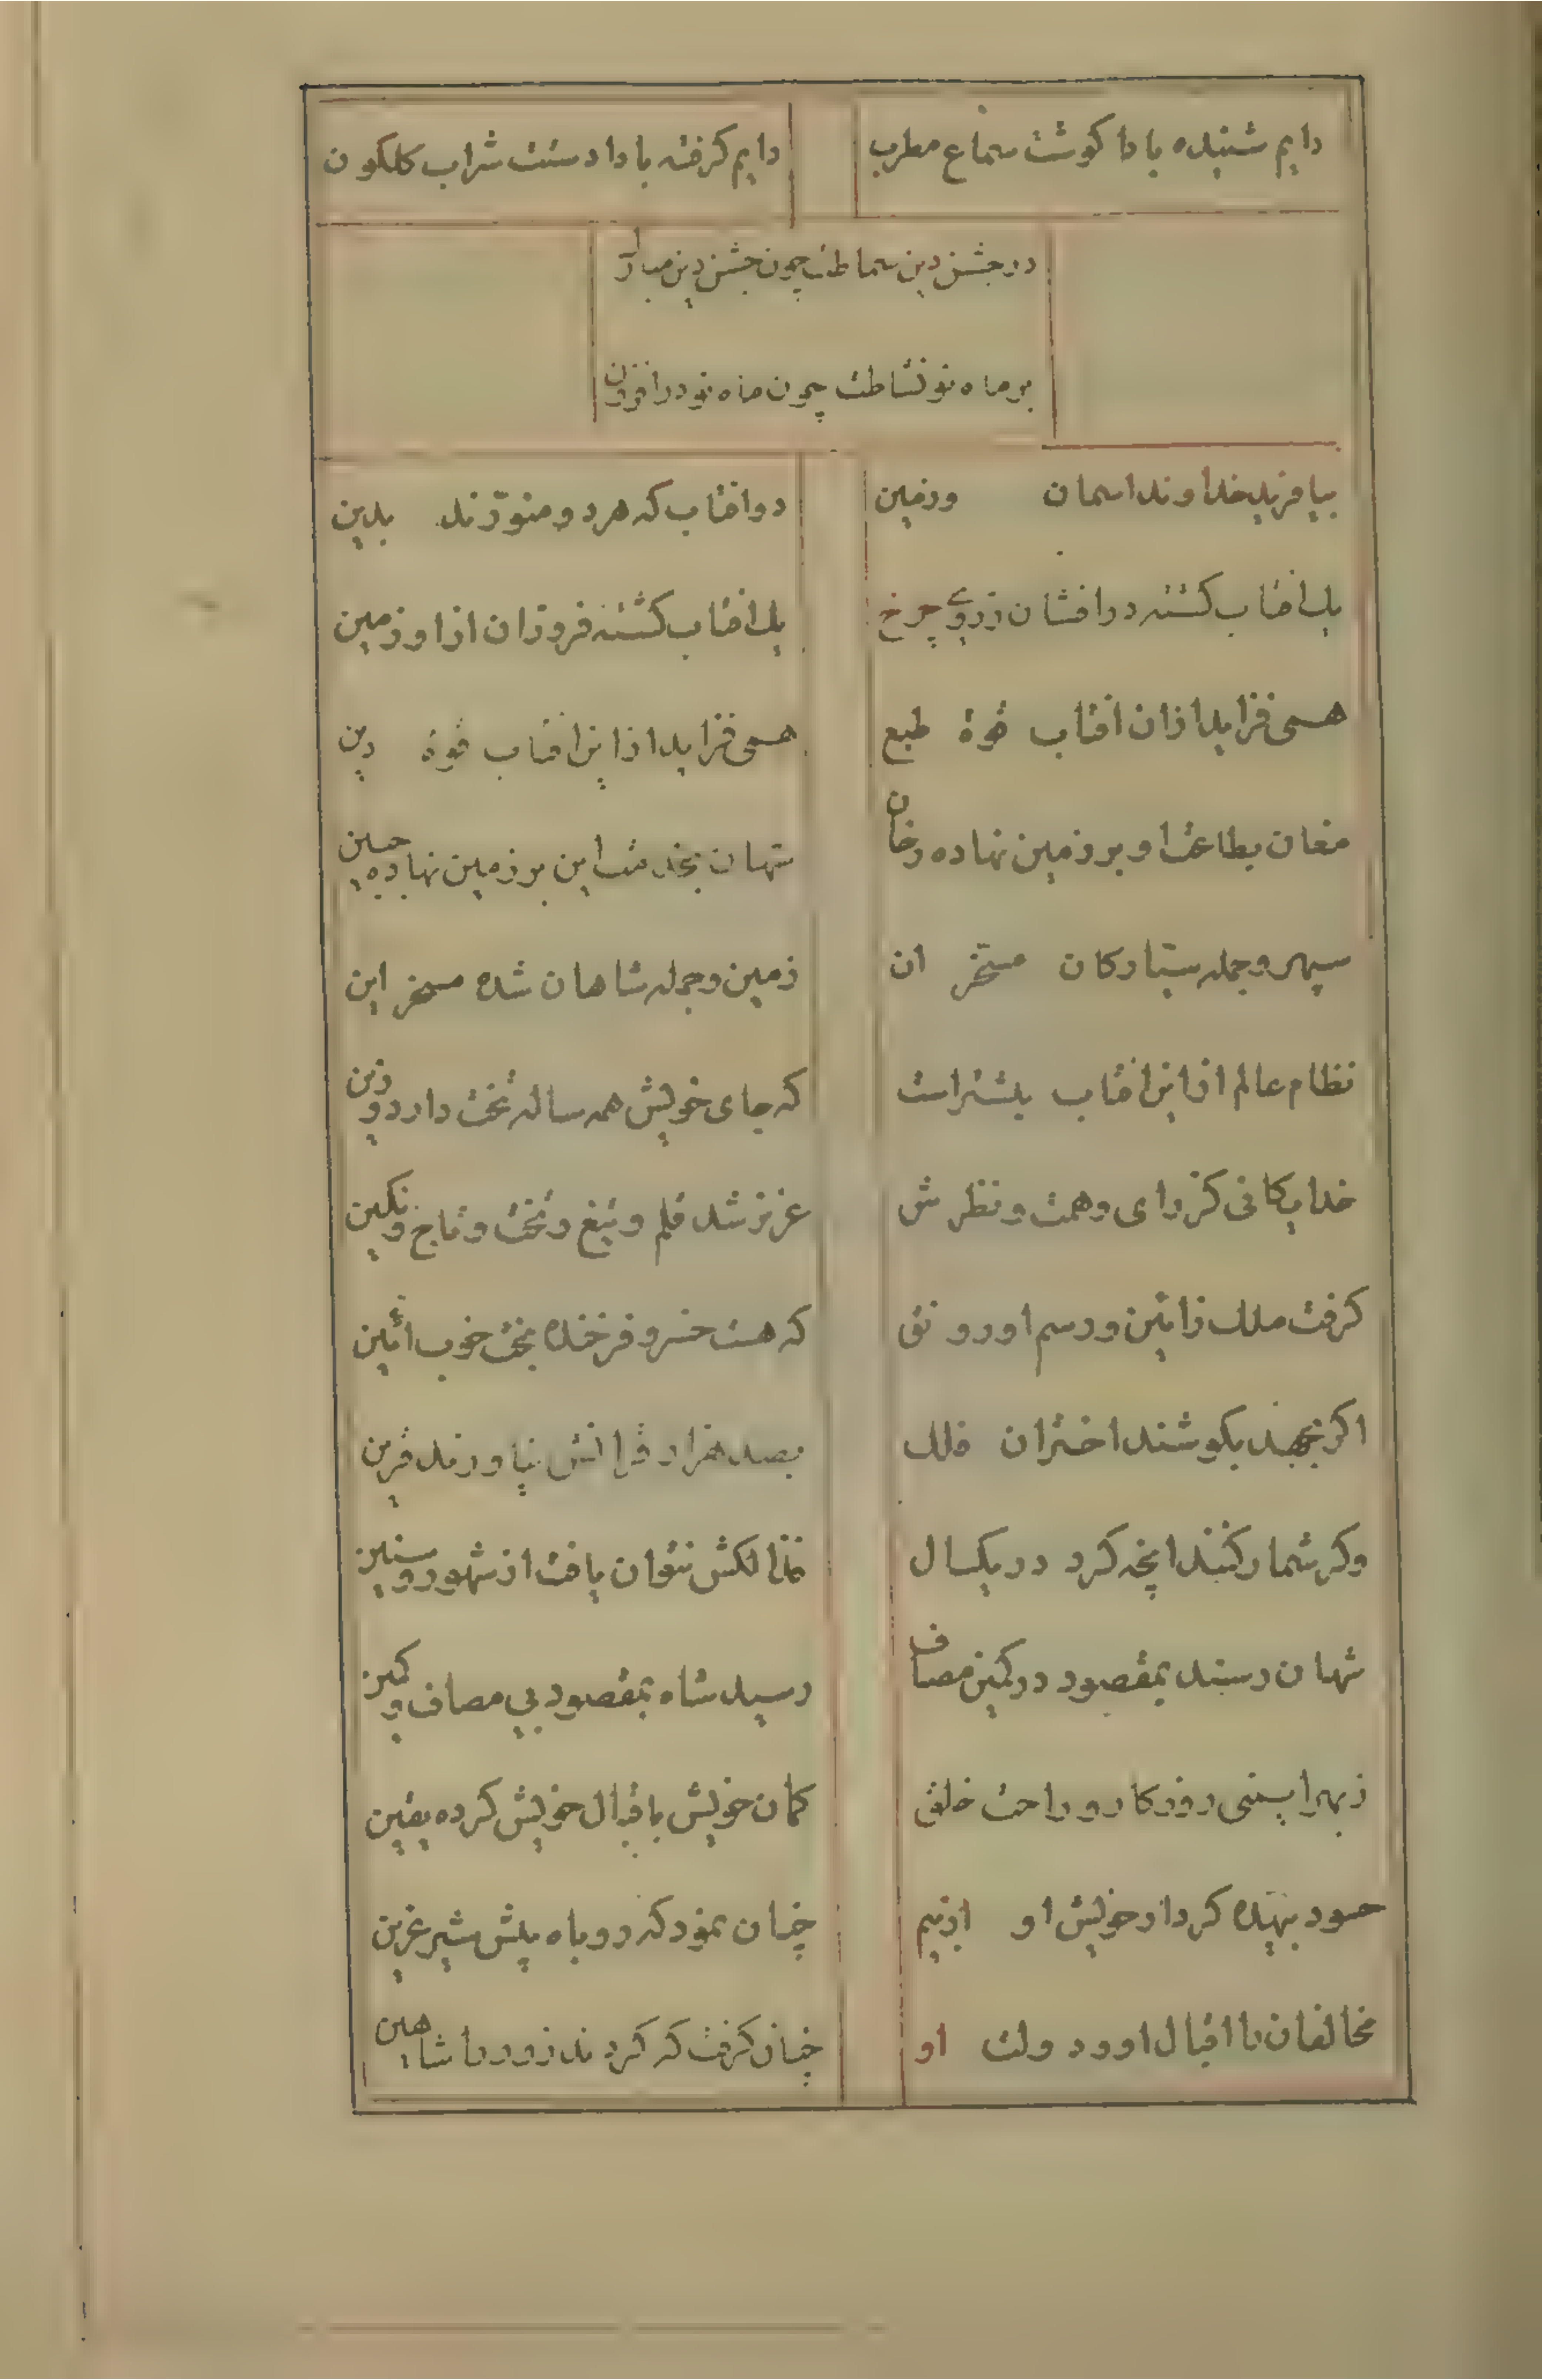 دایم شنیده بادا کوشت سماع مطرب
دایم کرفته بادا دستت شراب کلکون
در جشن دین سماطت چون جشن دین مبارک
بر ماه نو نشاطت چون ماه نو در افزون
بیافرید خداوند اسمان ورمین
دوافتاب که هر دو منوّرند بدین
یک افتاب کشته درافشان زروی چرخ
یک افتاب کشته فروزان ازاو زمین
همی فزاید ازان افتاب قوة طبع
همی فزاید ازاین افتاب قوة دین
مغان بطاعت او بر زمین نهاده رخان
شهان بخدمت این بر زمین نهاده جبین
سپهر وجمله ستارکان مسخّر ان
زمین وجمله شاهان شده مسخر این
نظام عالم ازاین افتاب بیشتر است
که جای خویش همه ساله تخت دارد وزین
خدایکانی کز رای وهمت ونظرش
عزیز شد قلم وتیغ وتخت وتاج ونکین
کرفت ملک زائین ورسم او رونق
که هست خسرو فرخنده بخت خوب ائین
اکر بجهد بکوشند اختران فلک
بصد هزار قرانش نیاورند قرین
وکر شمار کنند انچه کرد در یکسال
فذالکش نتوان یافت از شهور وسنین
شهان رسند بمقصود در کمین مصاف
رسید شاه بمقصود بی مصاف وکمین
زبهر ایمنی روزکار وراحت خلق
کمان خویش باقبال خویش کرده یقین
حسود بیهده کردار خویش او از بیم
چنان نمود که روباه پیش شیر عرین
مخالفان با اقبال او ودولت او
چنان کرفت که کردند زور با شاهین